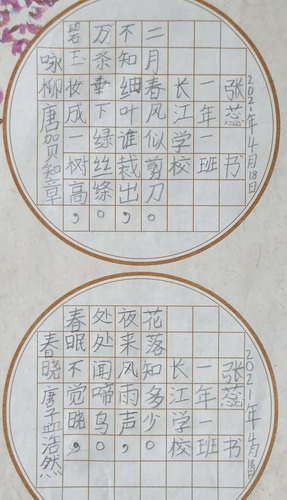 咏柳唐贺知章
碧玉妆成一树高，
万条垂下绿丝绦。
不知细叶谁裁出，
二月春风似剪刀。
长江学校
一年一班
张蕊书
2021年4月18日
春晓唐孟浩然
春眠不觉晓，
处处闻啼鸟。
夜来风雨声，
花落知多少。
长江学校
一年一班
张蕊书
2021年4月18日